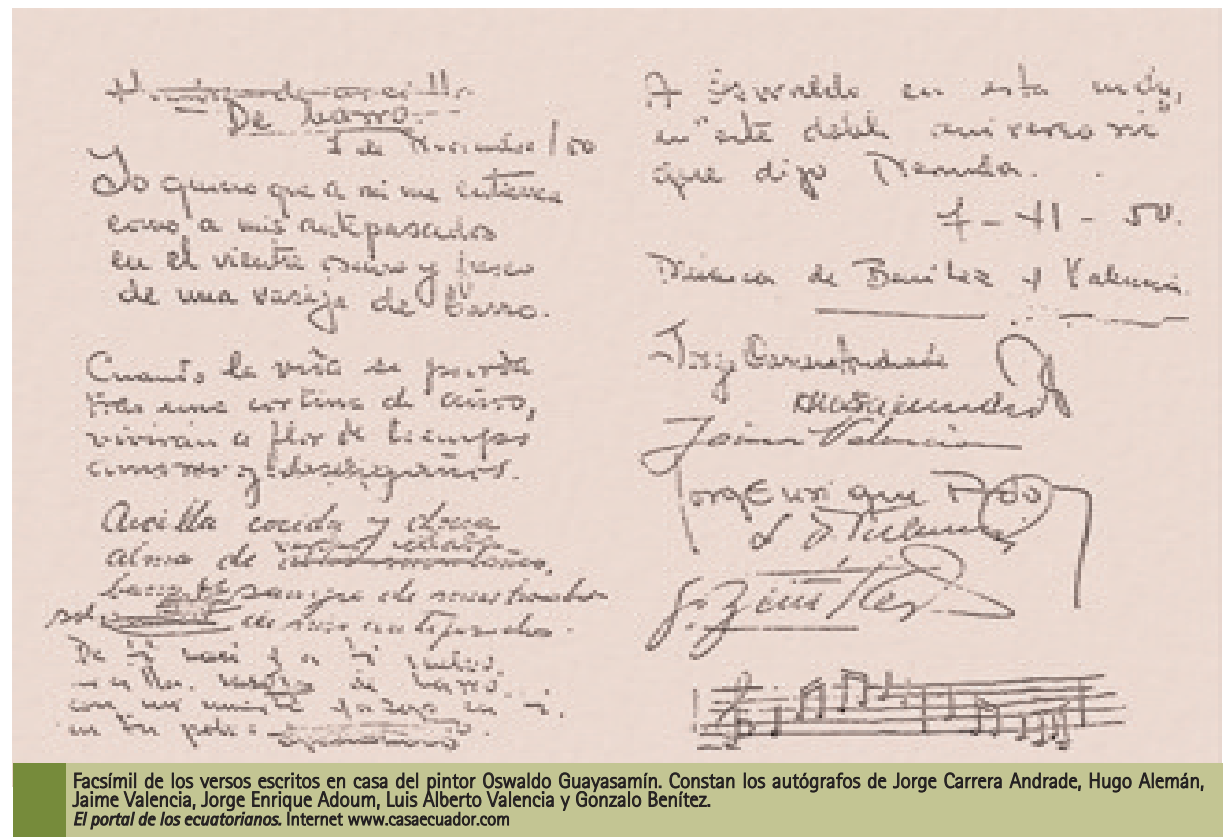 De barro.
7 de Noviembre/50
Yo quiero que a mi me entierren
como a mis antepasados
en el vientre oscuro y fresco
de una vasija de barro.
Cuando la vida se pierda
tras una cortina de años,
vivirán a flor de tiempos
amores y desengaños.
Arcilla cocida y dura
alma de
sangre de
sol de mis antepasados.
De ti nací y a ti vuelvo
vasija de barro.
con mi muerte yazgo en ti,
en tu polvo
A Oswaldo en esta
en este doble aniversario
que dijo Neruda.
7-11-50.
Música de Benítez y Valencia.
Jorge Carrera Andrade
Jaime Valencia
Jorg Enrique Ado
Facsímil de los versos escritos en casa del pintor Oswaldo Guayasamín. Constan los autógrafos de Jorge Carrera Andrade, Hugo Alemán,
Jaime Valencia, Jorge Enrique Adoum, Luis Alberto Valencia y Gonzalo Benítez.
El portal de los ecuatorianos. Internet www.casaecuador.com